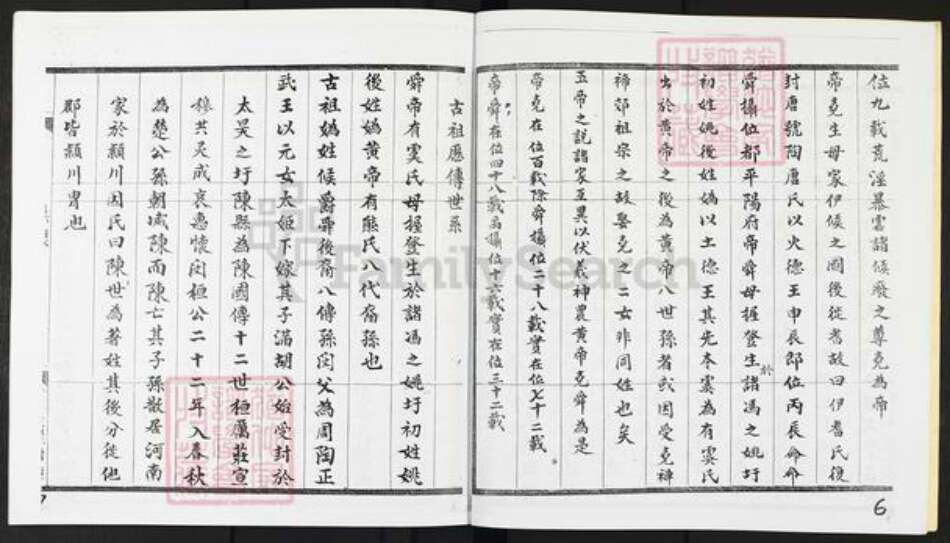 位九載荒淫暴虐諸候廢之尊克為帝
帝克生母家伊候之國後從耆故曰伊耆氏復
封唐號陶唐氏以火德王申辰即位丙辰命
舜攝位都平陽府帝舜母握登生於諸馮之姚圩
初姓姚後姓媯以土德王其先本虞為有虞氏
出於黃帝之後為黃帝八世孫者或因受克禅
禘郊祖宗之故娶克之二女非同姓也矣
五帝之說諸家互異以伏羲神農黃帝克舜為是
帝克在位百載除舜攝位二十八載實在位七十二載。
帝舜在位四十八載禹攝位十六載實在位三十二載
6
古祖應傳世系
舜帝有虞氏母握登生於諸馮之姚圩初姓姚
後姓媯黃帝有熊氏八代裔孫也
古祖媯姓候爵舜後裔八傳孫閼父為周陶正
武王以元女太姬下嫁其子滿胡公始受封於
太昊之圩陳縣為陳國傳十二世桓厲莊宣
穆共灵成哀惠懷閔桓公二十二年入春秋
為楚公孫朝滅陳而陳亡其子孫散居河南
家於穎川因氏曰陳世為著姓其後分徙他
郡皆穎川冑也
7
FamilySearch